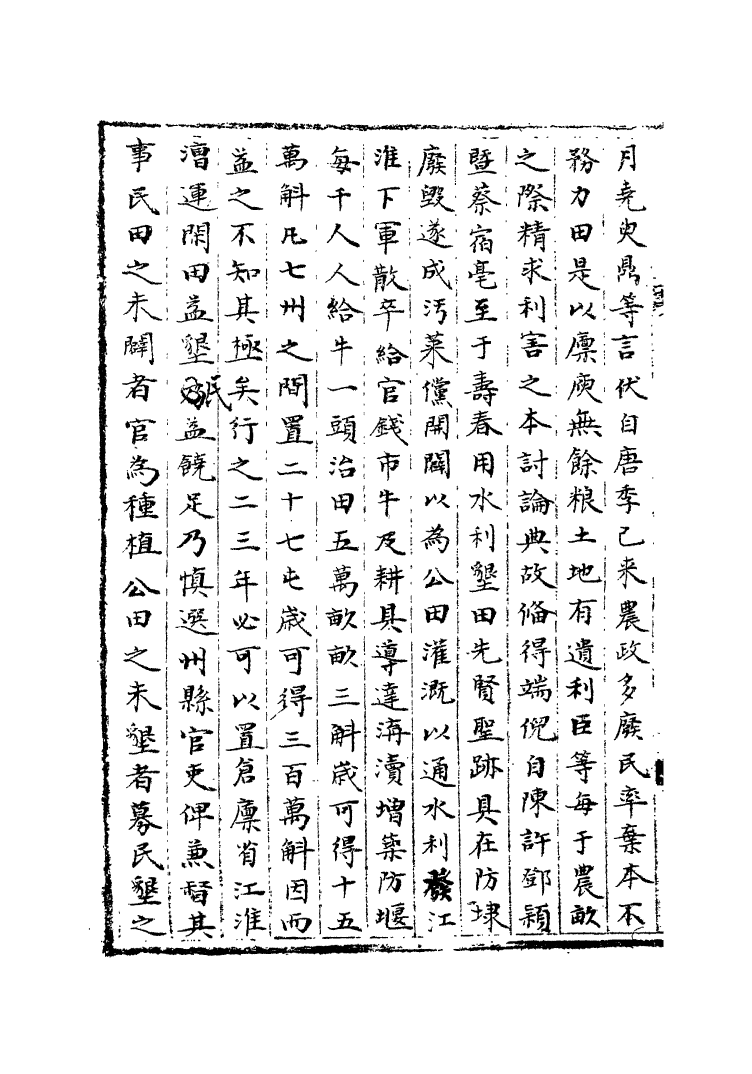 月堯叟鼎等言伏自唐季已来農政多廢民率棄本不
務力田是以廪庾無餘粮土地有遺利臣等每于農畝
之際精求利害之本討論典故偹得端倪自陳許鄧潁
暨蔡宿亳至于壽春用水利墾田先賢聖跡具在防埭
廢毀遂成汚萊儻開闢以為公田灌溉以通水利發江
淮下軍散卒給官錢市牛及耕具導達溝瀆增築防堰
每千人人給牛一頭治田五萬畝畝三斛歲可得十五
萬斛凡七州之間置二十七屯歲可得三百萬斛因而
益之不知其極矣行之二三年必可以置倉廪省江淮
漕運閑田益墾民益饒足乃慎選州縣官吏俾兼督其
事民田之未闢者官為種植公田之未墾者募民墾之